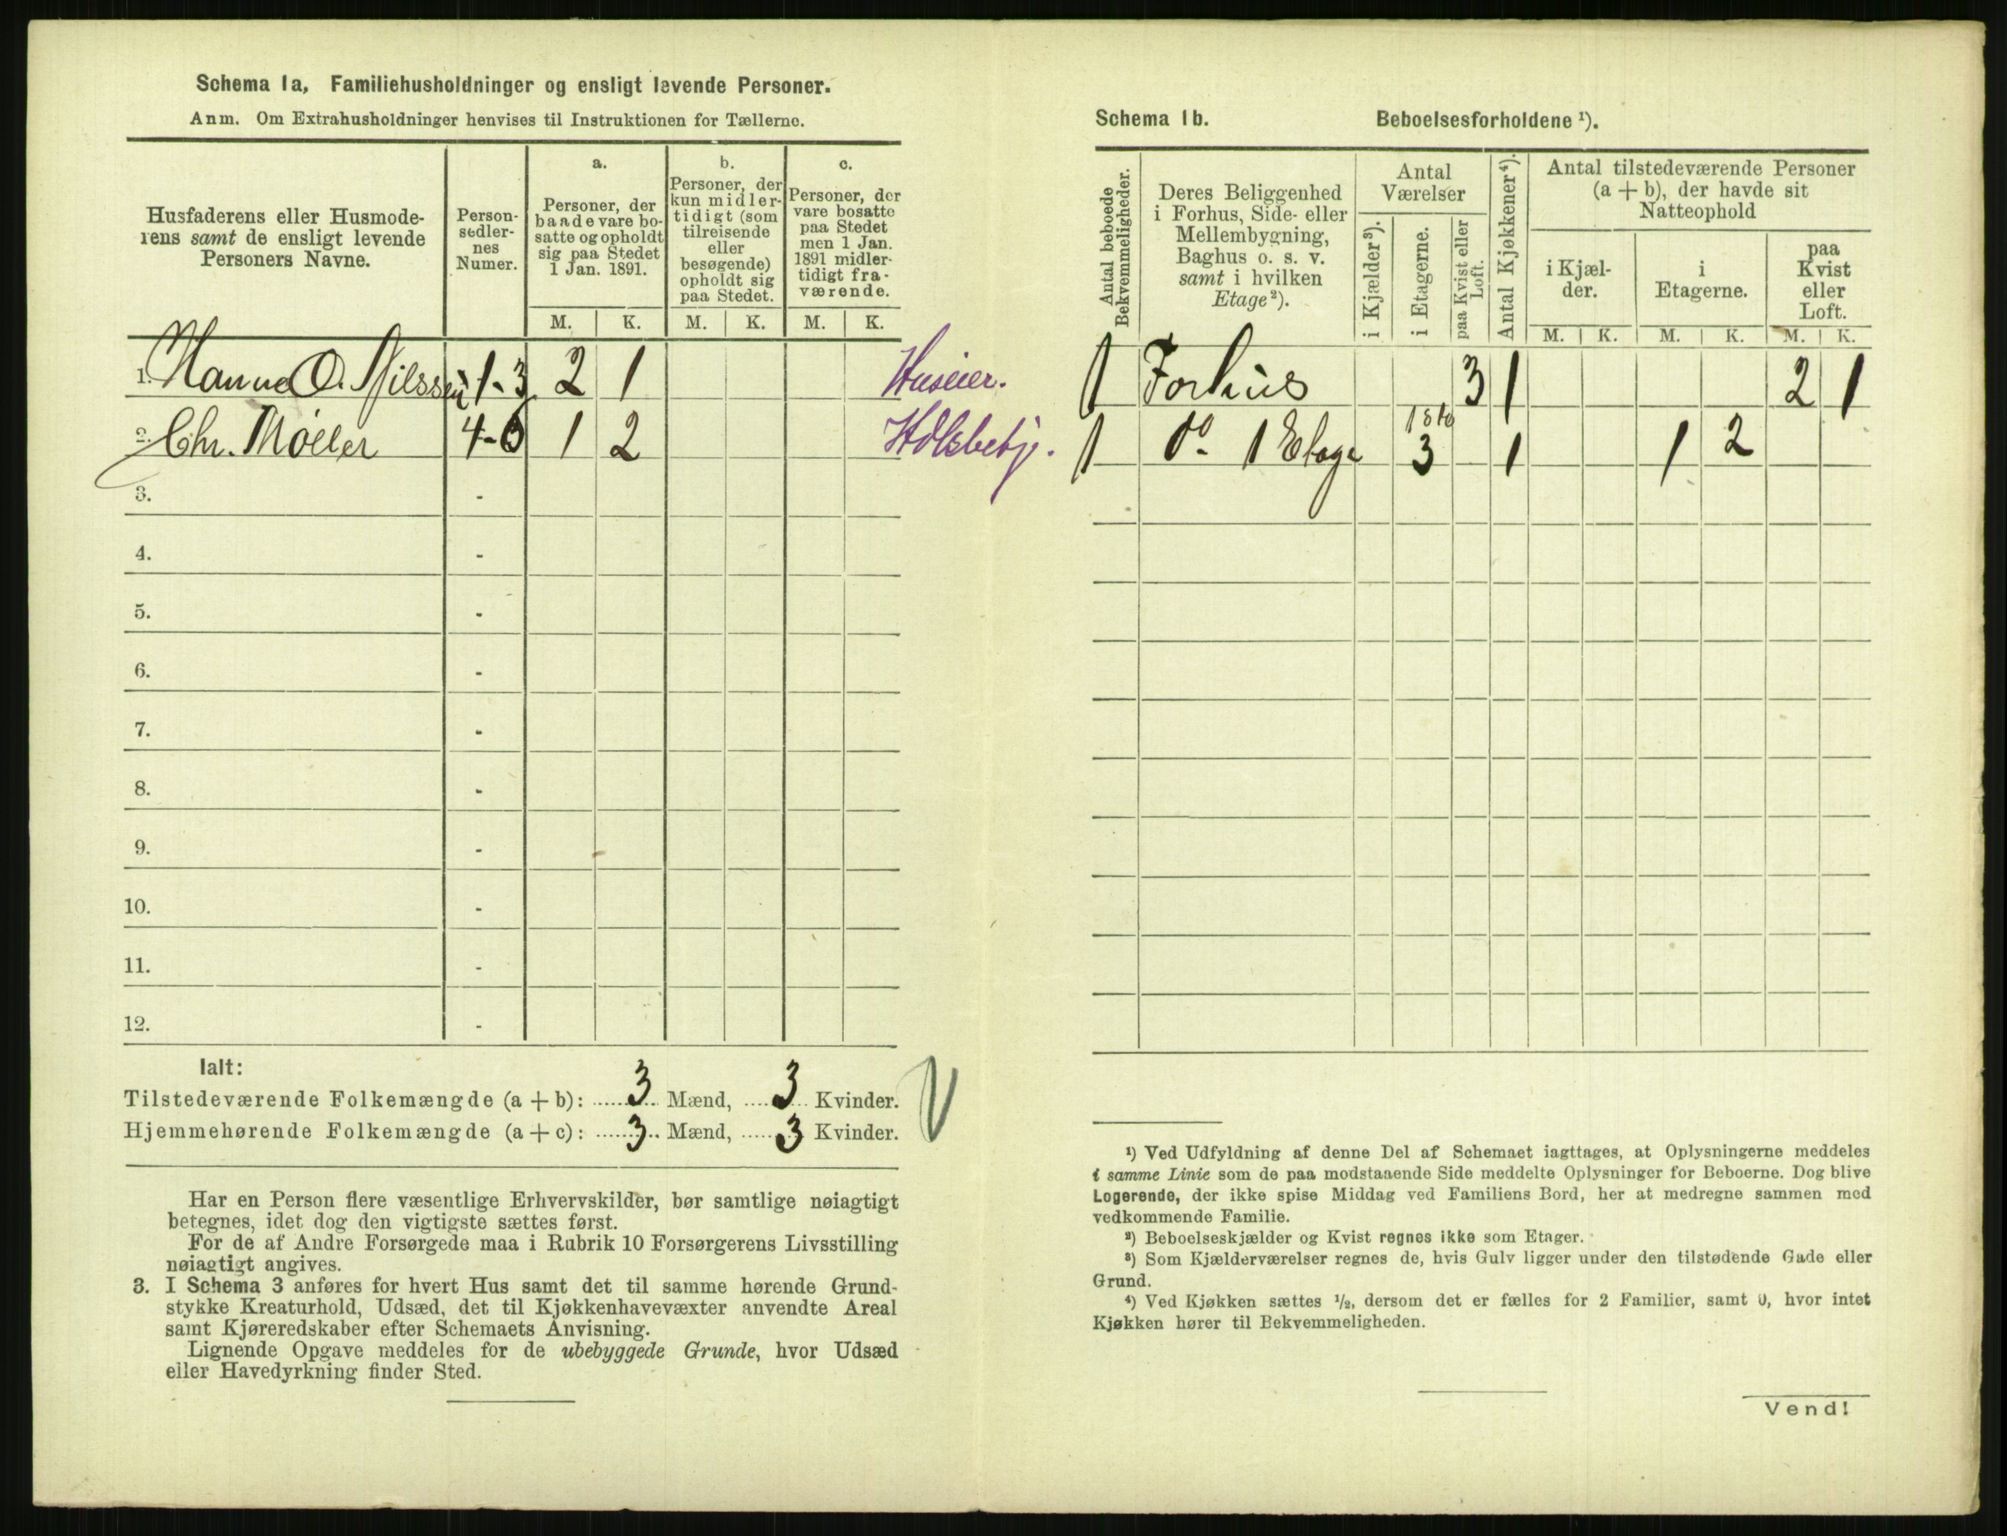 Schema 1a, Familiehusholdninger og ensligt levende Personer.
Anm. Om Extrahusholdninger henvises til Instruktionen for Tællerne.
Husfaderens eller Husmode-
rens samt de ensligt levende
Personers Navne.
Person-
sedler-
nes
Numer.
a.
Personer, der
baade vare bo-
satte og opholdt
sig paa Stedet
1 Jan. 1891.
b.
Personer, der
kun midler-
tidigt (som
tilreisende
eller
besøgende)
opholdt sig
paa Stedet.
c.
Personer, der
vare bosatte
paa Stedet
men 1 Jan.
1891 midler-
tidigt fra-
værende.
M. K. M. K. M. K.
1. Hanna O. Nilssen 1-3 2 1 Huseier.
2. Chr. Møller 4-6 1 2
3. -
4. -
5. -
6. -
7. -
8. -
9. -
10. -
11. -
12. -
Ialt:
Tilstedeværende Folkemængde (a + b): 3 Mænd, 3 Kvinder.
Hjemmehørende Folkemængde (a + c): 3 Mænd, 3 Kvinder.
Har en Person flere væsentlige Erhvervskilder, bør samtlige nøiagtigt
betegnes, idet dog den vigtigste sættes først.
For de af Andre Forsørgede maa i Rubrik 10 Forsørgerens Livsstilling
nøiagtigt angives.
3. I Schema 3 anføres for hvert Hus samt det til samme hørende Grund-
stykke Kreaturhold, Udsæd, det til Kjøkkenhavevæxter anvendte Areal
samt Kjøreredskaber efter Schemaets Anvisning.
Lignende Opgave meddeles for de ubebyggede Grunde, hvor Udsæd
eller Havedyrkning finder Sted.
Schema 1b. Beboelsesforholdene ¹).
Antal beboede
Bekvemmeligheder.
Deres Beliggenhed
i Forhus, Side- eller
Mellembygning,
Baghus o. s. v.
samt i hvilken
Etage ²).
Antal
Værelser
i Kjælder ³).
i Etagerne.
paa Kvist eller
Loft.
Antal Kjøkkener ⁴).
Antal tilstedeværende Personer
(a + b), der havde sit
Natteophold
i Kjæl-
der.
i
Etagerne.
paa
Kvist
eller
Loft.
M. K. M. K. M. K.
1 Forhus 3 1 2 1
1 do 1 Etage 3 1 1 2
¹) Ved Udfyldning af denne Del af Schemaet iagttages, at Oplysningerne meddeles
i samme Linie som de paa modstaaende Side meddelte Oplysninger for Beboerne. Dog blive
Logerende, der ikke spise Middag ved Familiens Bord, her at medregne sammen med
vedkommende Familie.
²) Beboelseskjælder og Kvist regnes ikke som Etager.
³) Som Kjælderværelser regnes de, hvis Gulv ligger under den tilstødende Gade eller
Grund.
⁴) Ved Kjøkken sættes ½, dersom det er fælles for 2 Familier, samt 0, hvor intet
Kjøkken hører til Bekvemmeligheden.
Vend!